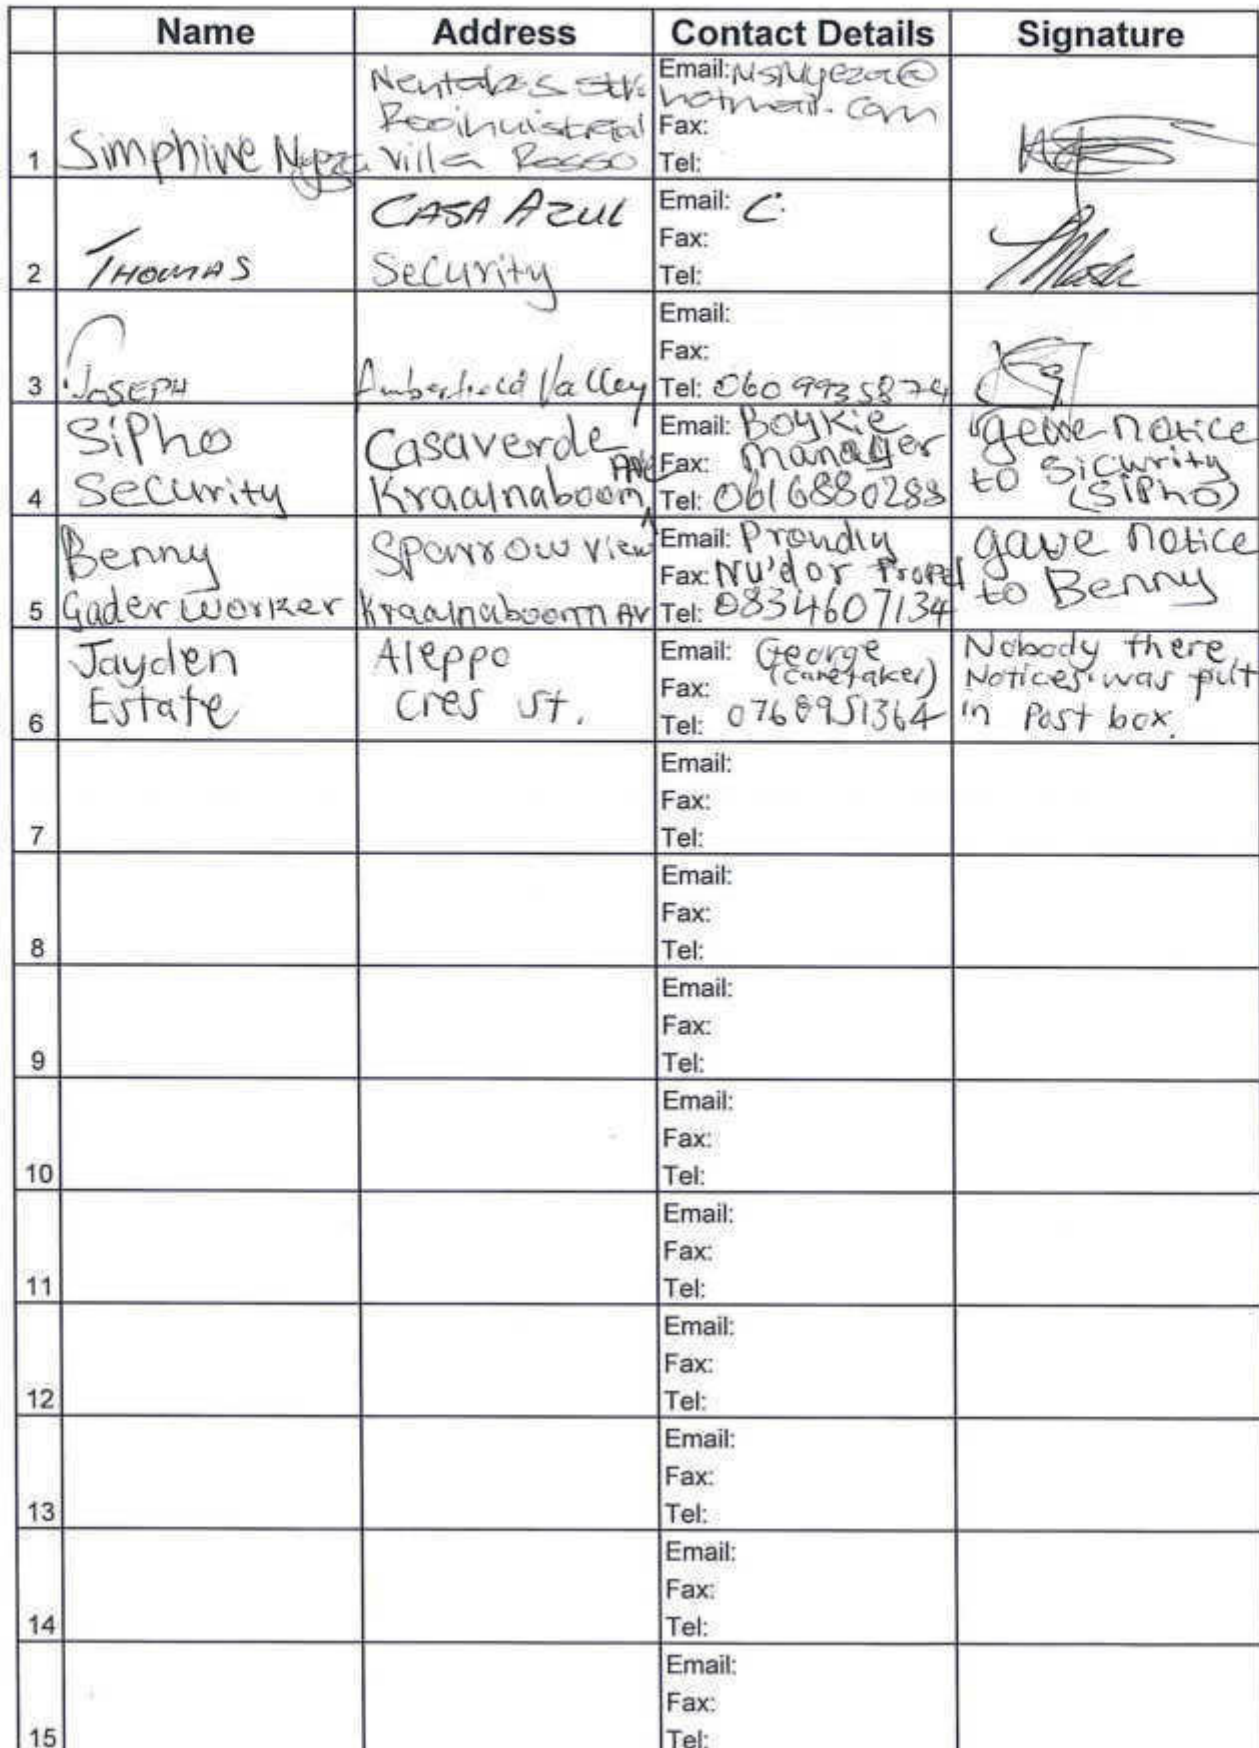 Name Address Contact Details Signature
1 Simphiwe Nyeza
Villa Rosso
Email: MsNyeza@
hotmail.com
Fax:
Tel:
2 THOMAS
CASA AZUL
Security
Email: C.
Fax:
Tel:
3 JOSEPH
Amberfield Valley
Email:
Fax:
Tel: 060 9935874
4 Sipho
Security
Casaverde
Kraalnaboom Ave
Email: Boykie
Fax: Manager
Tel: 0616880288
gave notice
to Sicurity
(Sipho)
5 Benny
Gader Worker
Sparrow view
Kraalnaboom Av
Email: Proudly
Fax: NU'dor Propel
Tel: 0834607134
gave notice
to Benny
6 Jayden
Estate
Aleppo
Cres st.
Email: George
(caretaker)
Fax:
Tel: 0768951364
Nobody there,
Notices was put
in Post box.
7
Email:
Fax:
Tel:
8
Email:
Fax:
Tel:
9
Email:
Fax:
Tel:
10
Email:
Fax:
Tel:
11
Email:
Fax:
Tel:
12
Email:
Fax:
Tel:
13
Email:
Fax:
Tel:
14
Email:
Fax:
Tel:
15
Email:
Fax:
Tel: